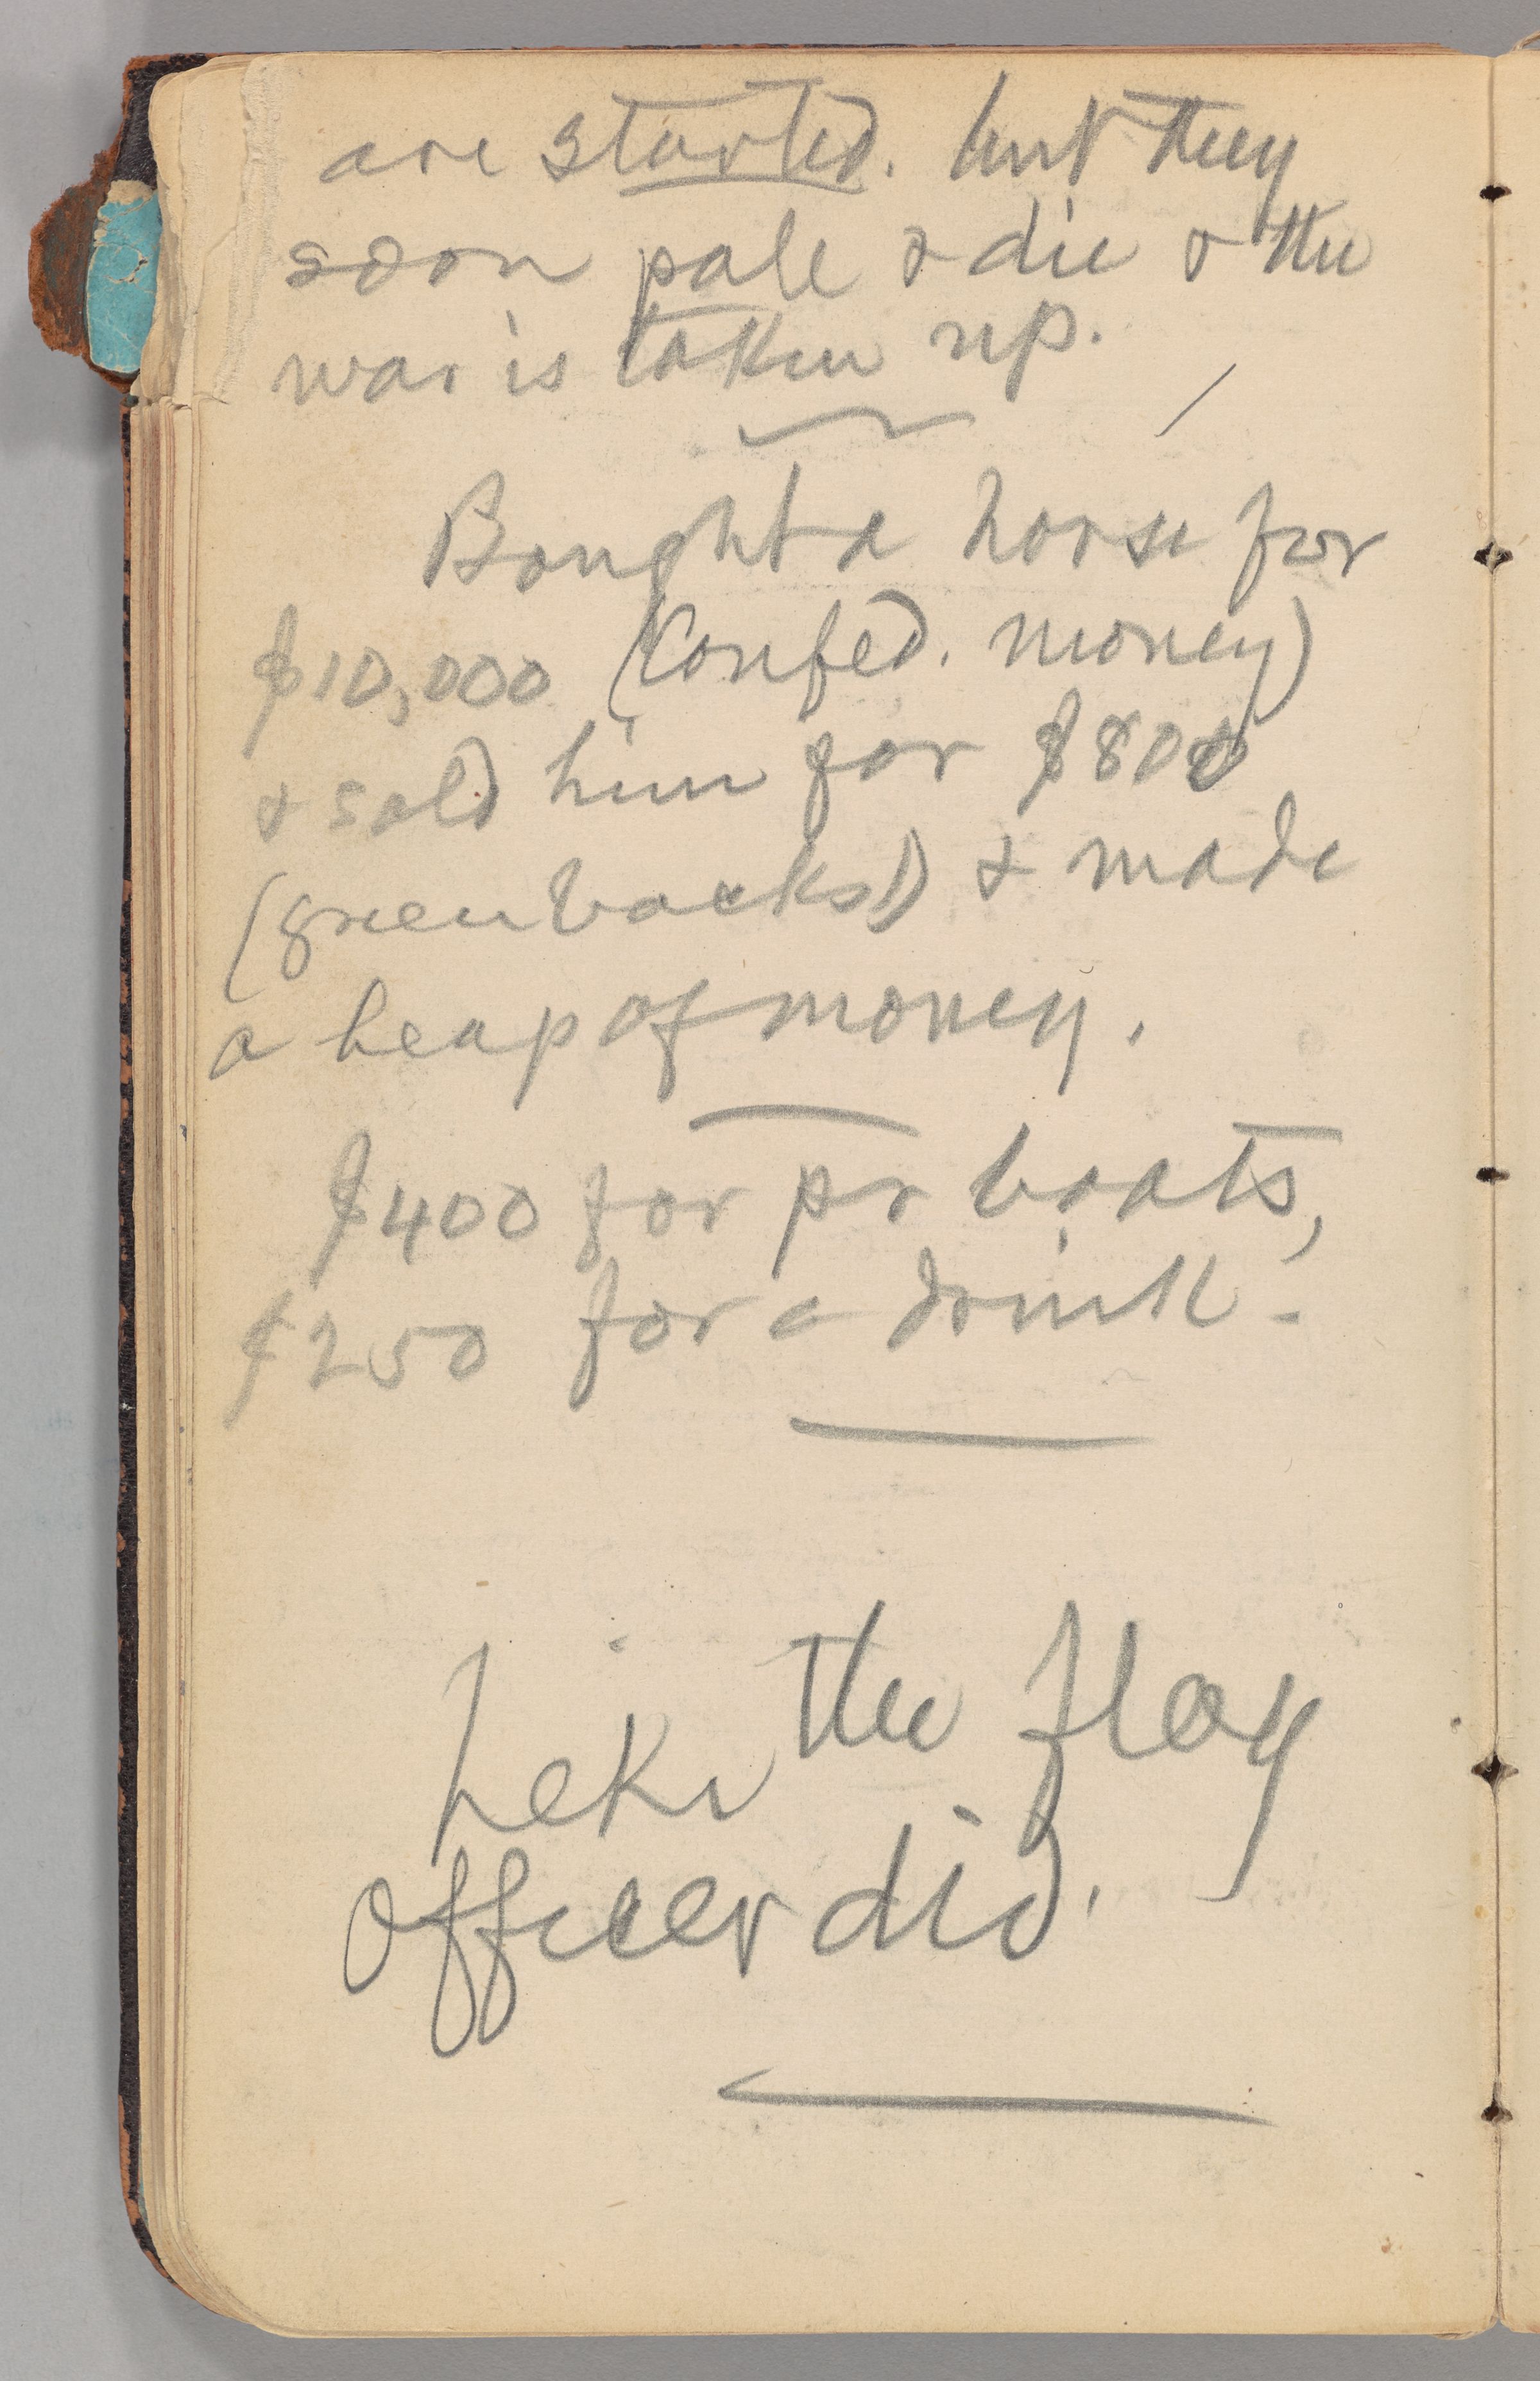 are started. but they
soon pale & die & the
war is taken up.
Bought a horse for
$10,000 (Confed. money)
& sold him for $800
(greenbacks!) & made
a heap of money.
$400 for pr boots,
$250 for a drink.
Like the flag
officer did.